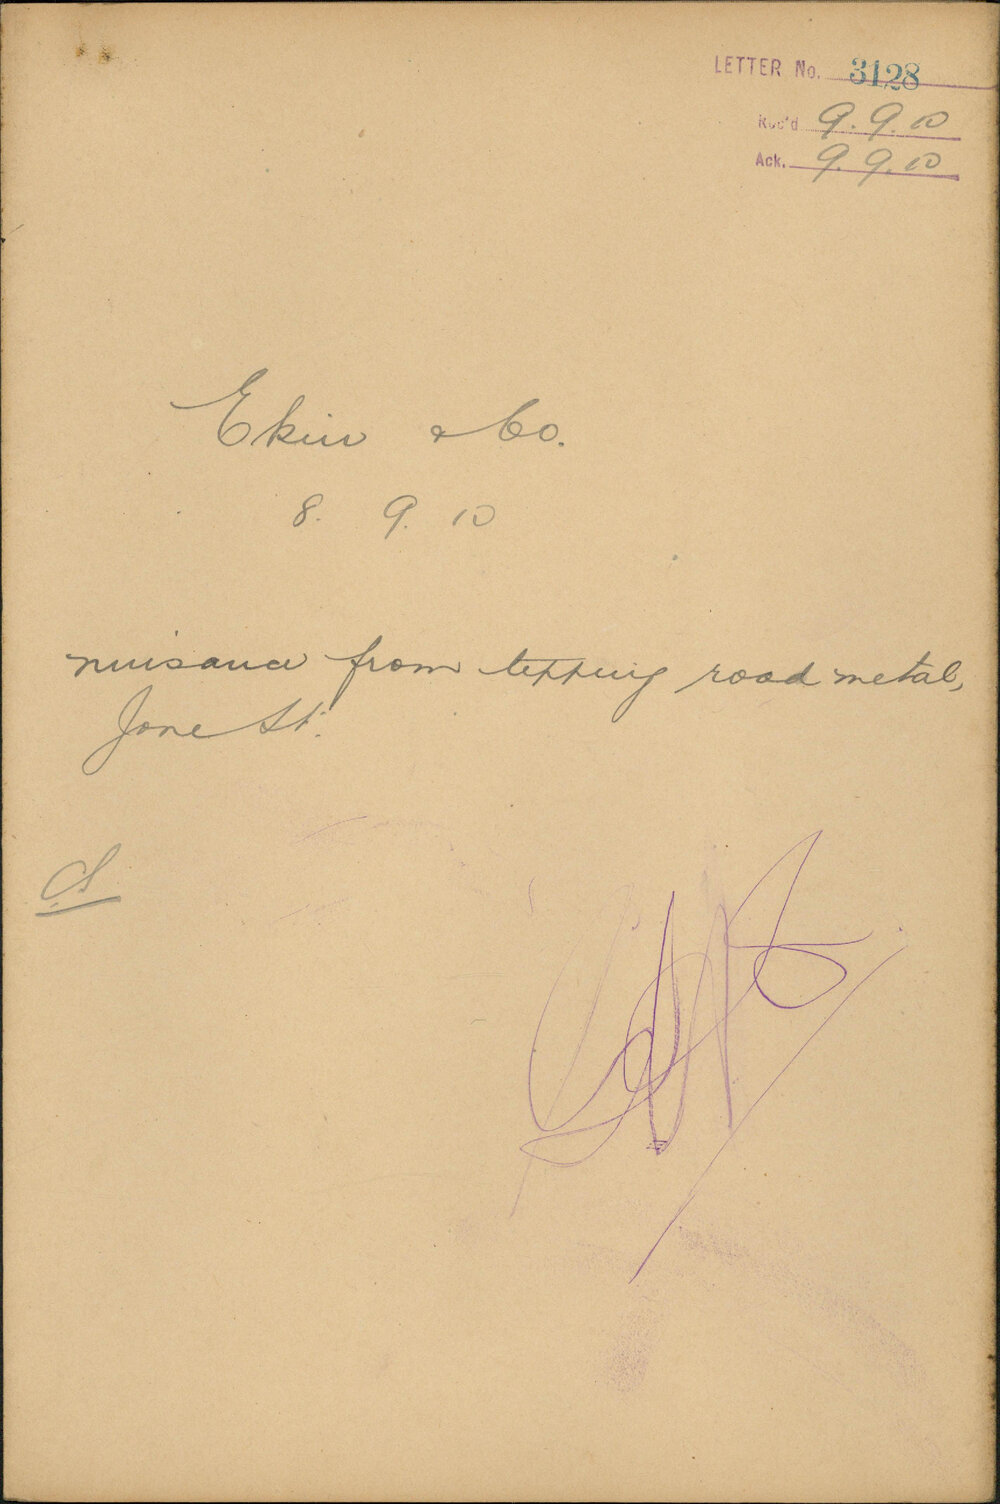 LETTER No. 3128
Rec'd 9.9.10
Ack. 9.9.10
Ekin & Co.
8. 9. 10
nuisance from tipping road metal,
Jane St.